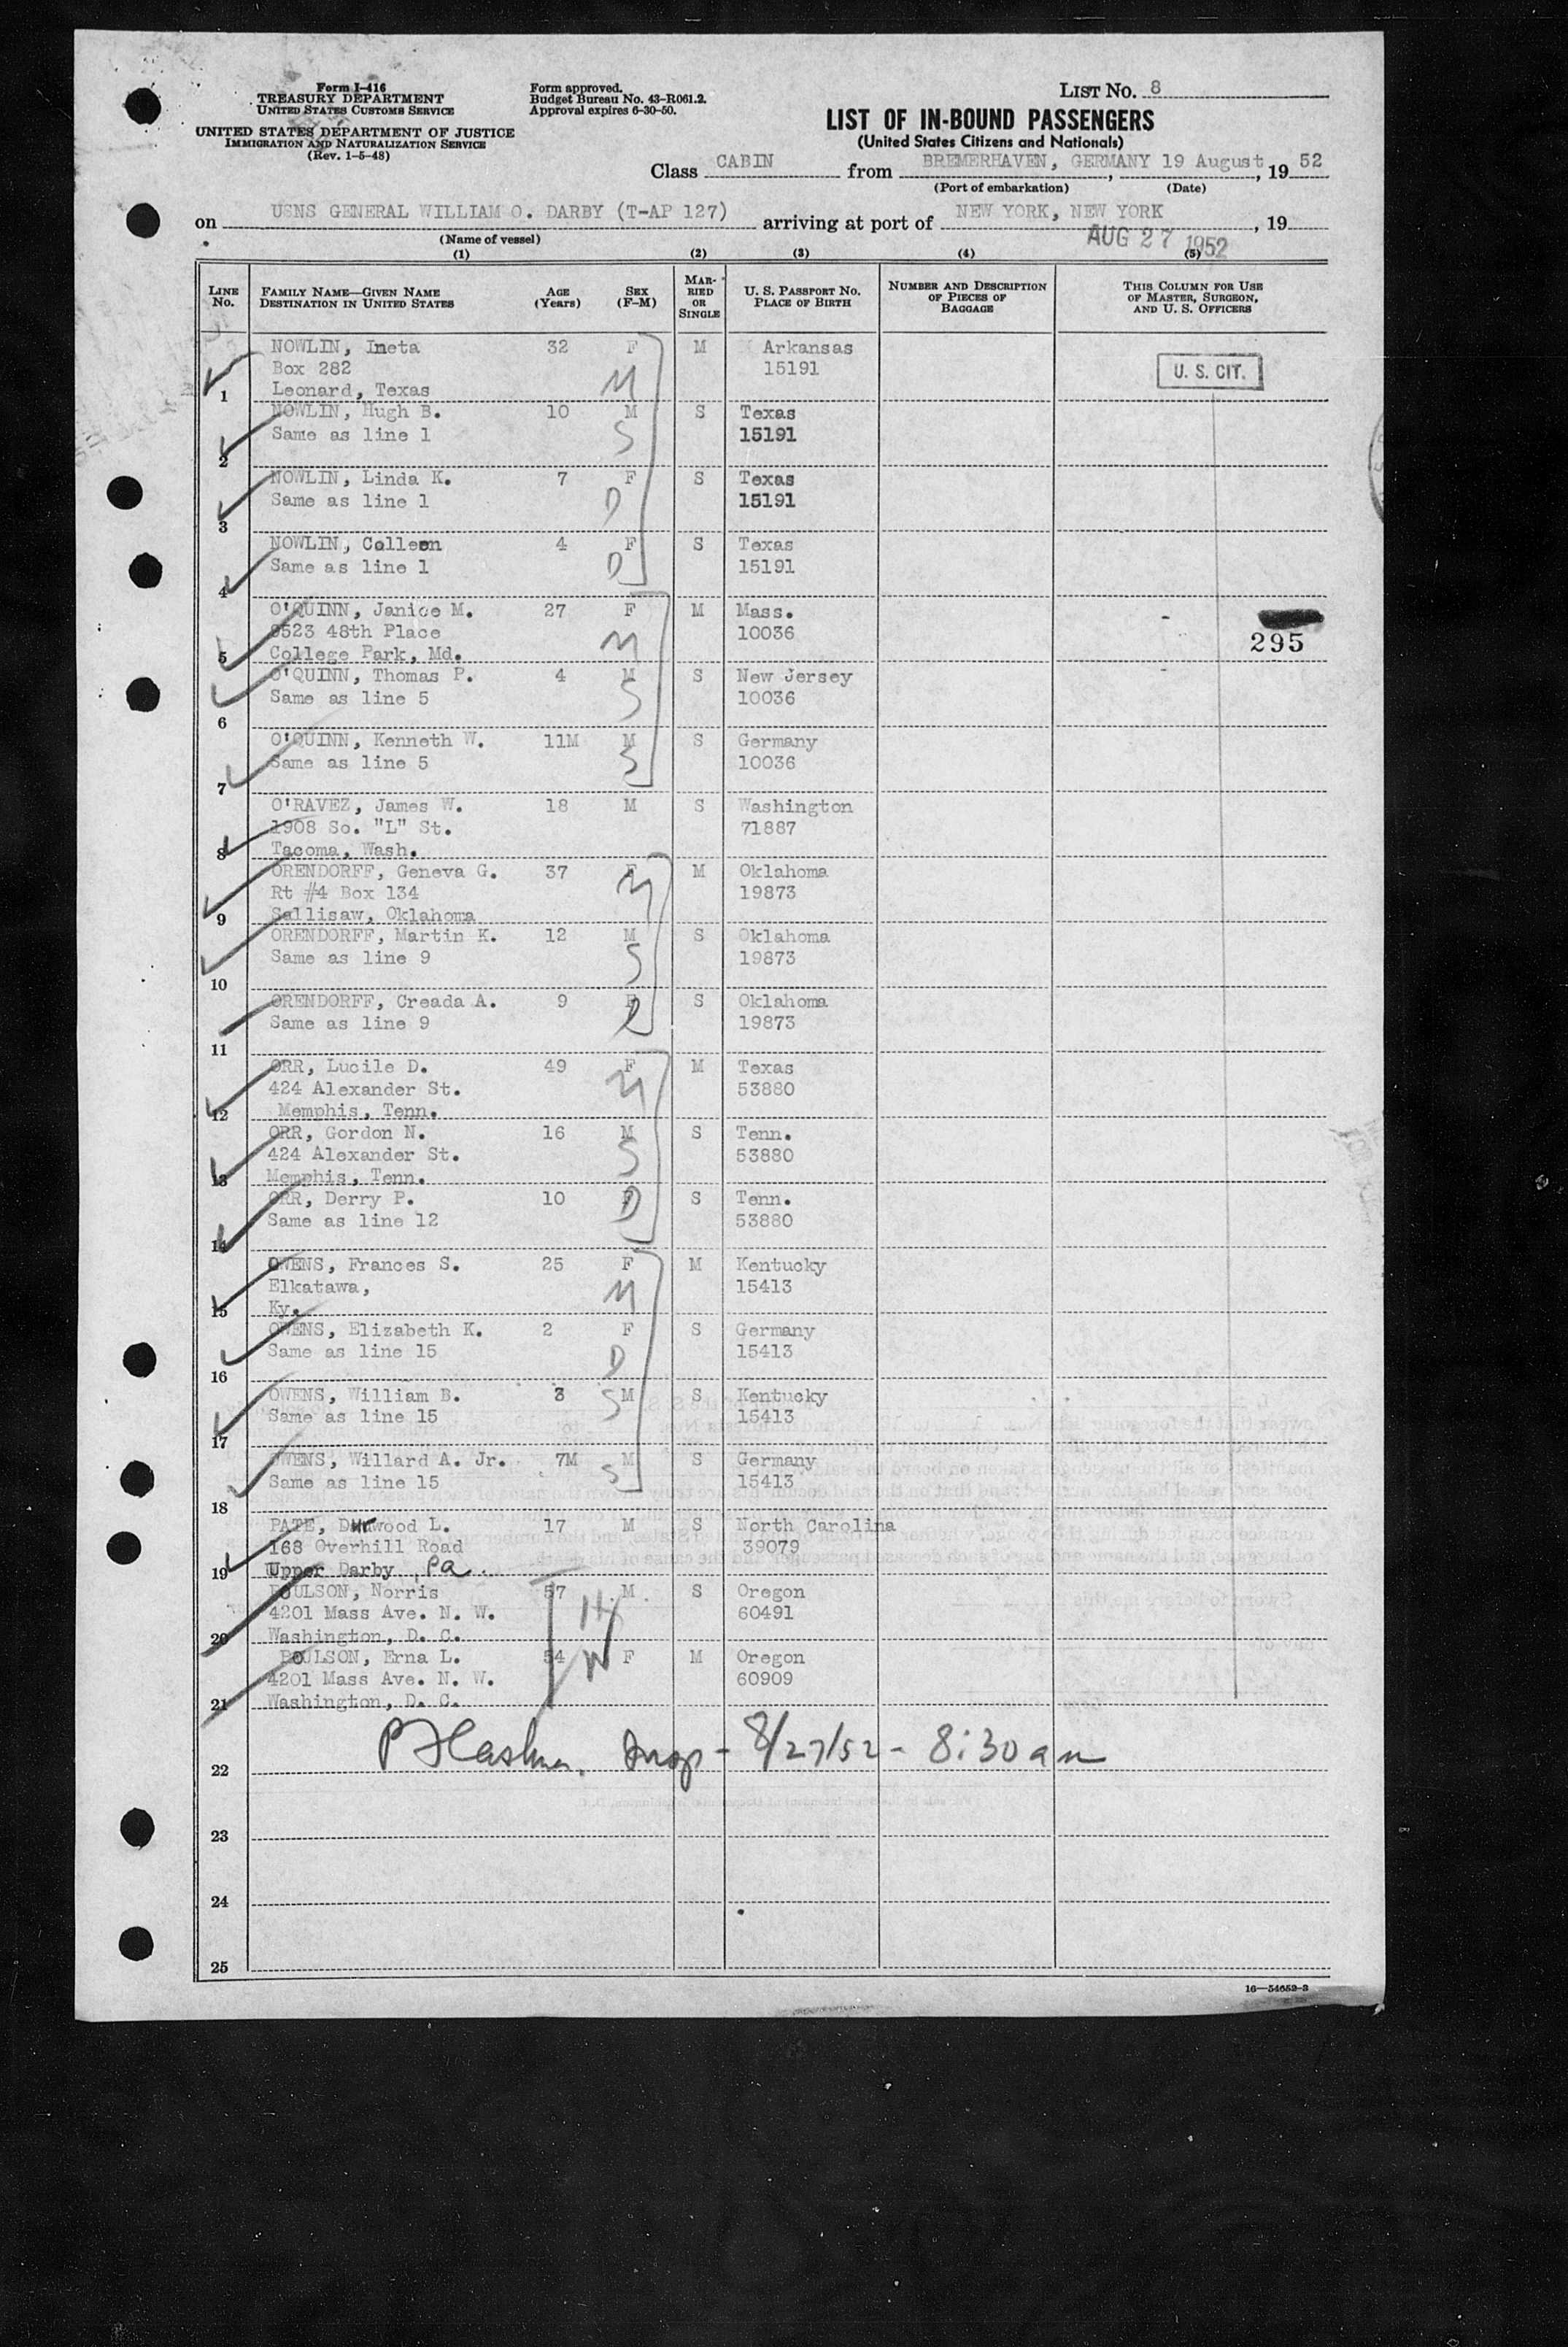 Form I-416
TREASURY DEPARTMENT
UNITED STATES CUSTOMS SERVICE
UNITED STATES DEPARTMENT OF JUSTICE
IMMIGRATION AND NATURALIZATION SERVICE
(Rev. 1-5-48)
Form approved.
Budget Bureau No. 43-R061.2.
Approval expires 6-30-50.
LIST NO. 8
LIST OF IN-BOUND PASSENGERS
(United States Citizens and Nationals)
Class CABIN from BREMERHAVEN, GERMANY 19 August, 19 52
(Port of embarkation) (Date)
on USNS GENERAL WILLIAM O. DARBY (T-AP 127) arriving at port of NEW YORK, NEW YORK, 19
(Name of vessel) AUG 27 1952
(1) (2) (3) (4) (5)
LINE NO. FAMILY NAME—GIVEN NAME DESTINATION IN UNITED STATES AGE (Years) SEX (F-M) MARRIED OR SINGLE U. S. PASSPORT NO. PLACE OF BIRTH NUMBER AND DESCRIPTION OF PIECES OF BAGGAGE THIS COLUMN FOR USE OF MASTER, SURGEON, AND U. S. OFFICERS
NOWLIN, Ineta 32 F M Arkansas
Box 282 M 15191 U. S. CIT.
1 Leonard, Texas
NOWLIN, Hugh B. 10 M S Texas
Same as line 1 S 15191
2
NOWLIN, Linda K. 7 F S Texas
Same as line 1 D 15191
3
NOWLIN, Colleen 4 F S Texas
Same as line 1 D 15191
4
O'QUINN, Janice M. 27 F M Mass.
9523 48th Place M 10036 295
5 College Park, Md.
O'QUINN, Thomas P. 4 M S New Jersey
Same as line 5 S 10036
6
O'QUINN, Kenneth W. 11M M S Germany
Same as line 5 S 10036
7
O'RAVEZ, James W. 18 M S Washington
1908 So. "L" St. 71887
8 Tacoma, Wash.
ORENDORFF, Geneva G. 37 F M Oklahoma
Rt #4 Box 134 M 19873
9 Sallisaw, Oklahoma
ORENDORFF, Martin K. 12 M S Oklahoma
Same as line 9 S 19873
10
ORENDORFF, Creada A. 9 F S Oklahoma
Same as line 9 D 19873
11
ORR, Lucile D. 49 F M Texas
424 Alexander St. M 53880
12 Memphis, Tenn.
ORR, Gordon N. 16 M S Tenn.
424 Alexander St. S 53880
13 Memphis, Tenn.
ORR, Derry P. 10 F D S Tenn.
Same as line 12 53880
14
OWENS, Frances S. 25 F M Kentucky
Elkatawa, M 15413
15 Ky.
OWENS, Elizabeth K. 2 F S Germany
Same as line 15 D 15413
16
OWENS, William B. 3 S M S Kentucky
Same as line 15 15413
17
OWENS, Willard A. Jr. 7M M S Germany
Same as line 15 S 15413
18
PATE, Durwood L. 17 M S North Carolina
168 Overhill Road 39079
19 Upper Darby, Pa.
POULSON, Norris 57 M S Oregon
4201 Mass Ave. N. W. H 60491
20 Washington, D. C.
POULSON, Erna L. 54 W F M Oregon
4201 Mass Ave. N. W. 60909
21 Washington, D. C.
22 Insp - 8/27/52 - 8:30 am
23
24
25
16—54652-3